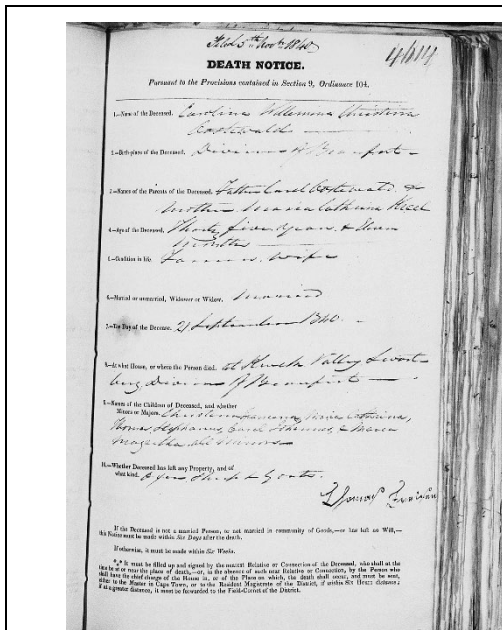 Filed 5th Novr 1840
4614
DEATH NOTICE.
Pursuant to the Provisions contained in Section 9, Ordinance 104.
1.—Name of the Deceased. Carolina Willemina Christina
Oostewald
2.—Birth-place of the Deceased. Division of Beaufort
3.—Names of the Parents of the Deceased. Father Carel Oostewald &
Mother Maria Catharina
4.—Age of the Deceased. Thirty five Years & Eleven
Months
5.—Condition in life. Farmers Wife
6.—Married or unmarried, Widower or Widow. Married
7.—The Day of the Decease. 21 September 1840
8.—At what House, or where the Person died. at Valley
Division of Beaufort
9.—Names of the Children of Deceased, and whether
Minors or Majors. Christina Maria Catharina,
Thomas Stephanus, Carel Johannes, & Maria
all Minors
10.—Whether Deceased has left any Property, and of
what kind. A few Sheep & Goats.
Thomas
If the Deceased is not a married Person, is not married in community of Goods,—or has left no Will,—
this Notice must be made within Six Days after the death.
If otherwise, it must be made within Six Weeks.
*** It must be filled up and signed by the nearest Relative or Connexion of the Deceased, who shall at the
time be at or near the place of death,—or, in the absence of such near Relative or Connexion, by the Person who
shall have the chief charge of the House in, or of the Place on which, the death shall occur, and must be sent,
either to the Master in Cape Town, or to the Resident Magistrate of the District, if within Six Hours distance;
if at a greater distance, it must be forwarded to the Field-Cornet of the District.